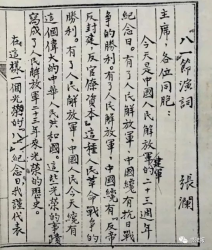 八一節演詞
張瀾
主席,各位同胞:
今天是中國人民解放軍建軍的二十三週年
紀念日。有了人民解放軍,中國纔有抗戰
爭的勝利,有了人民解放軍,中國纔有反帝
反封建、反官僚資本,這種人民革命戰爭的
勝利,有了人民解放軍,中國人民今天纔有
這個偉大的中華人民共和國。這些光榮的事蹟
寫成了人民解放軍二十三年來光榮的歷史。
在這樣一個光榮的「八一」紀念日,我謹代表